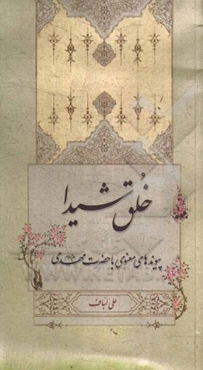 خُلق شیدا
پیوندهای معنوی با حضرت مهدی
علی لباف